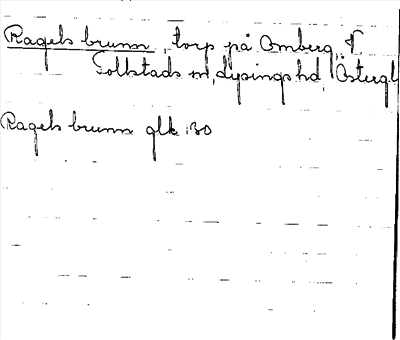 Ragels brunn, torp på Omberg, i
Tollstads sn, Lysings hd, Östergl
Ragels brunn glk 30